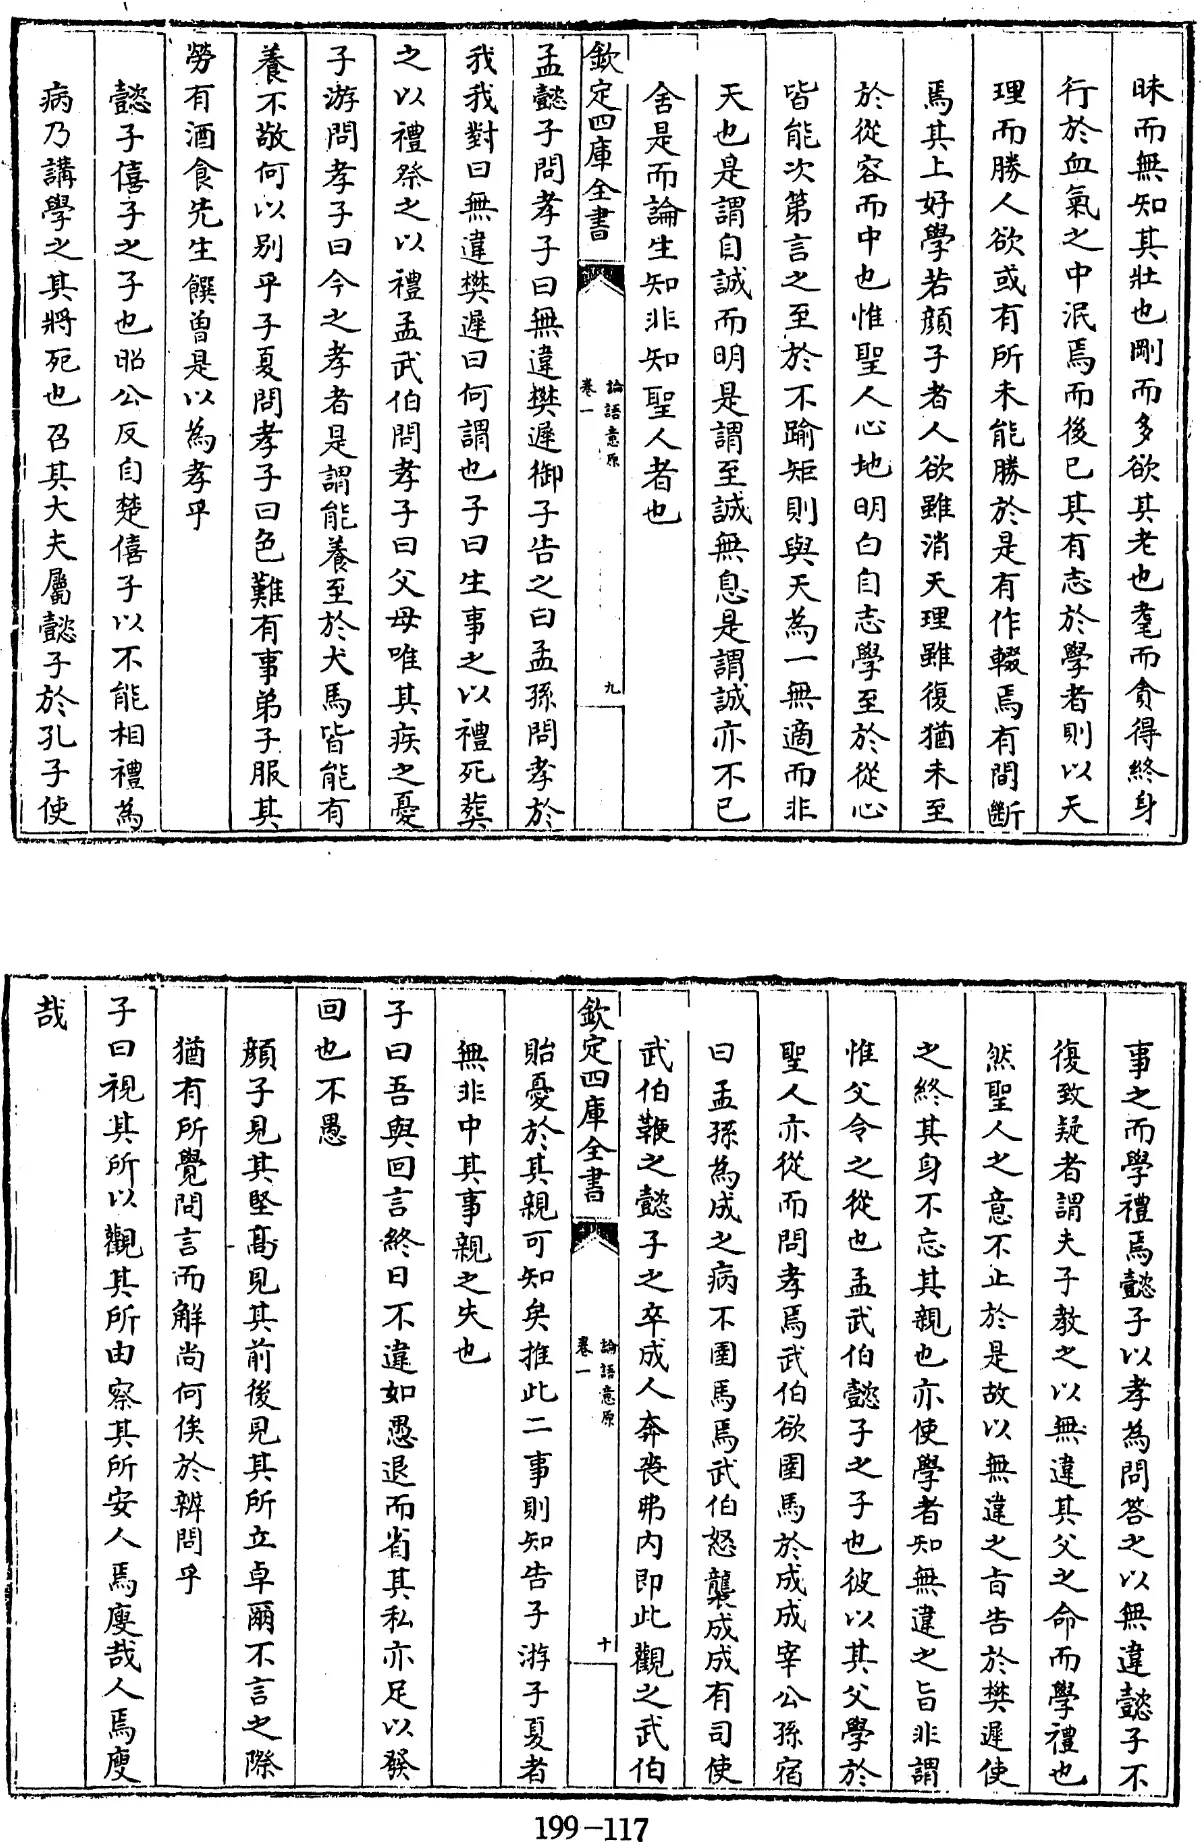 昧而無知其壯也剛而多欲其老也耄而貪得終身
行於血氣之中泯焉而後已其有志於學者則以天
理而勝人欲或有所未能勝於是有作輟焉有間斷
焉其上好學若顔子者人欲雖消天理雖復猶未至
於從容而中也惟聖人心地明白自志學至於從心
皆能次第言之至於不踰矩則與天為一無適而非
天也是謂自誠而明是謂至誠無息是謂誠亦不已
舍是而論生知非知聖人者也
欽定四庫全書
論語意原
卷一
九
孟懿子問孝子曰無違樊遲御子告之曰孟孫問孝於
我我對曰無違樊遲曰何謂也子曰生事之以禮死葬
之以禮祭之以禮孟武伯問孝子曰父母唯其疾之憂
子游問孝子曰今之孝者是謂能養至於犬馬皆能有
養不敬何以别乎子夏問孝子曰色難有事弟子服其
勞有酒食先生饌曾是以為孝乎
懿子僖子之子也昭公反自楚僖子以不能相禮為
病乃講學之其將死也召其大夫屬懿子於孔子使
事之而學禮焉懿子以孝為問答之以無違懿子不
復致疑者謂夫子教之以無違其父之命而學禮也
然聖人之意不止於是故以無違之旨告於樊遲使
之終其身不忘其親也亦使學者知無違之旨非謂
惟父令之從也孟武伯懿子之子也彼以其父學於
聖人亦從而問孝焉武伯欲圉馬於成成宰公孫宿
曰孟孫為成之病不圉馬焉武伯怒襲成成有司使
武伯鞭之懿子之卒成人奔喪弗内即此觀之武伯
欽定四庫全書
論語意原
卷一
十
貽憂於其親可知矣推此二事則知告子游子夏者
無非中其事親之失也
子曰吾與回言終日不違如愚退而省其私亦足以發
回也不愚
顔子見其堅高見其前後見其所立卓爾不言之際
猶有所覺問言而解尚何俟於辨問乎
子曰視其所以觀其所由察其所安人焉廋哉人焉廋
哉
199-117